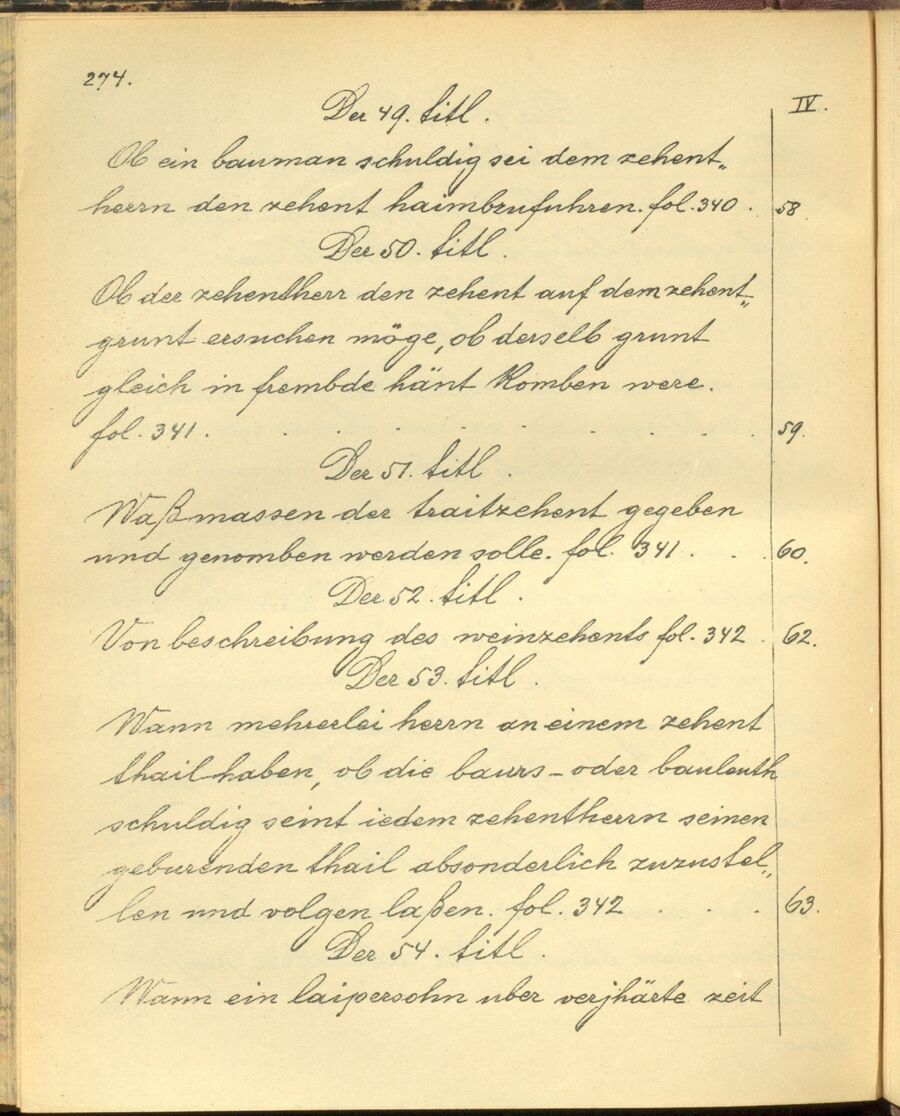 274.
IV.
Der 49. titl.
Ob ein bauman schuldig sei dem zehent„
herrn den zehent haimbzufuhren. fol. 340 . 58
Der 50. titl.
Ob der zehentherr den zehent auf dem zehent„
grunt ersuchen möge, ob derselb grunt
gleich in frembde hänt komben were.
fol. 341 . . . . . . . . . . 59.
Der 51. titl.
Waßmassen der traitzehent gegeben
und genomben werden solle. fol. 341 . . . 60.
Der 52. titl.
Von beschreibung des weinzehents fol. 342 . 62.
Der 53. titl.
Wann mehrerlei herrn an einem zehent
thail haben, ob die baurs- oder bauleuth
schuldig seint iedem zehentherrn seinen
geburenden thail absonderlich zuzustel„
len und volgen laßen. fol. 342 . . . 63.
Der 54. titl.
Wann ein laipersohn uber verjhärte zeit